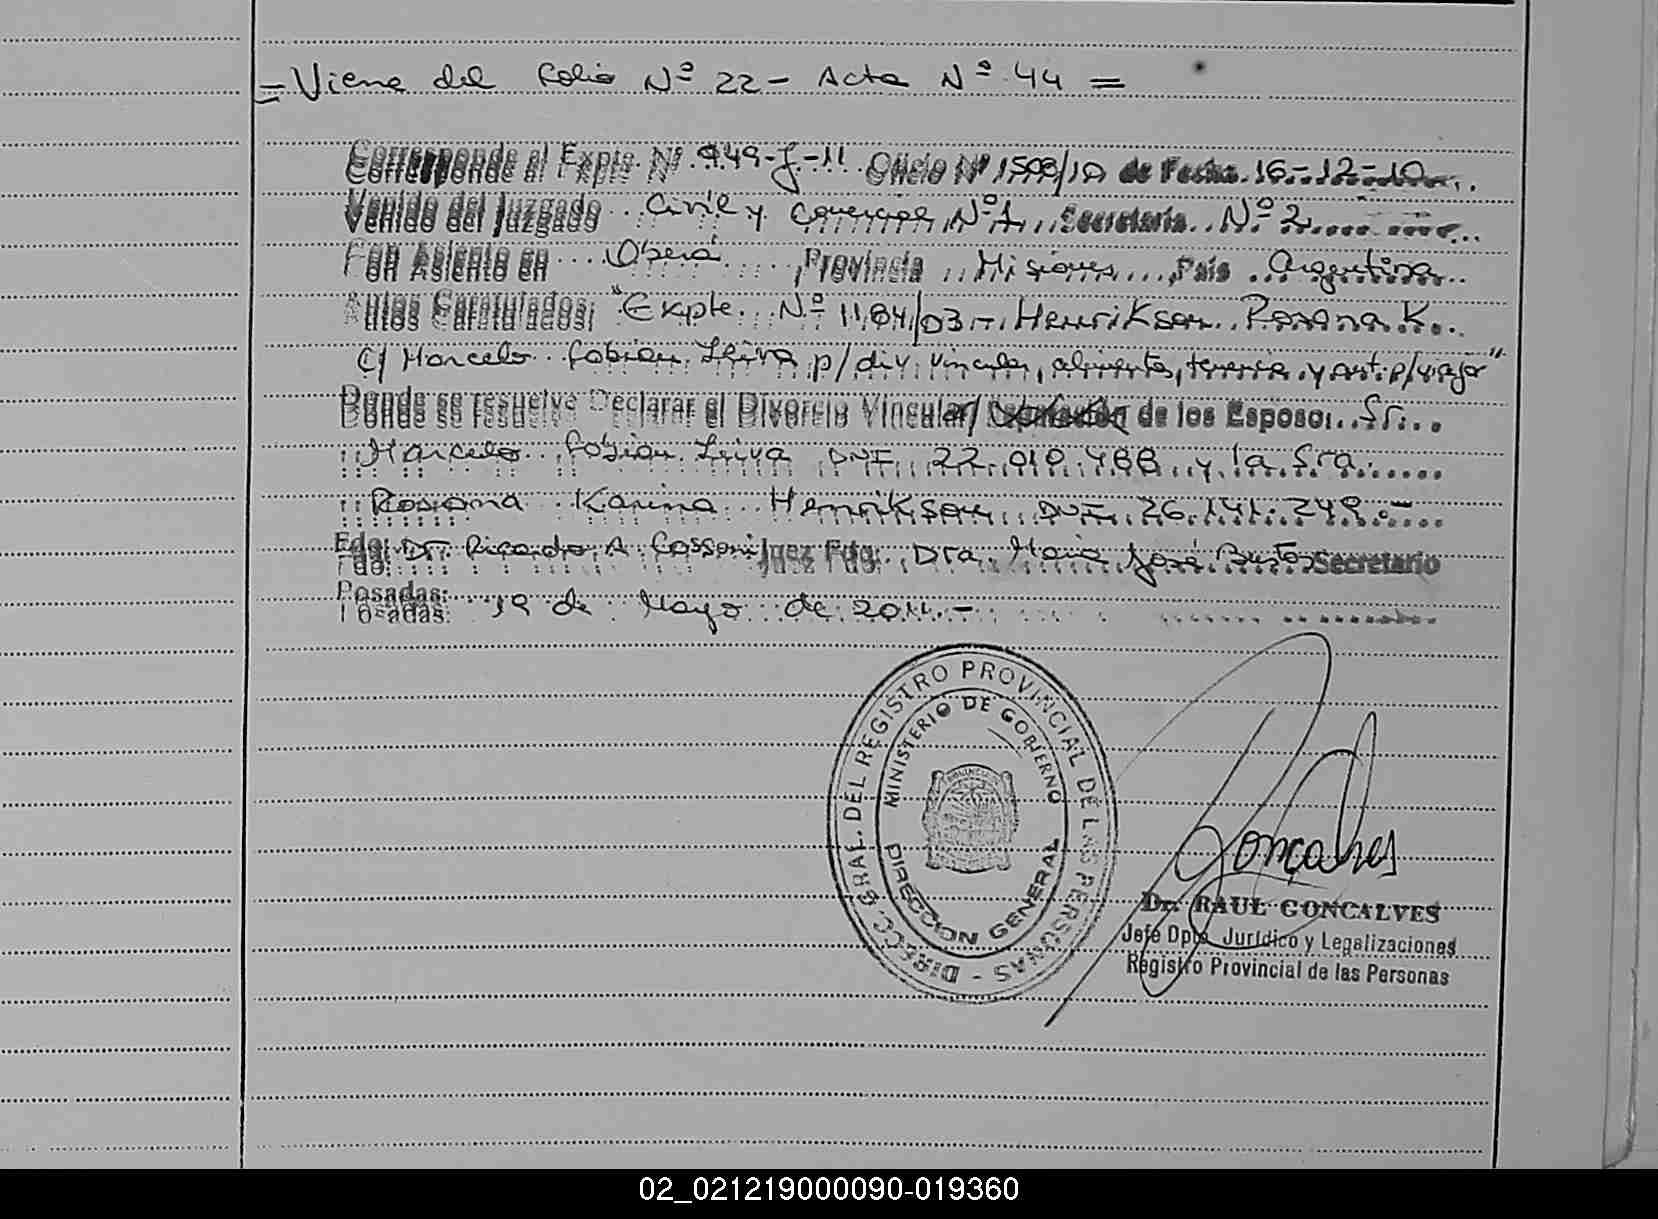 = Viene del folio Nº 22 - Acta Nº 44 =
Corresponde al Expte. Nº 949-J-11 Oficio Nº 1508/10 de Fecha 16-12-10
Venido del Juzgado Civil y Comercial Nº 1, Secretaria Nº 2
Con Asiento en Oberá, Provincia Misiones, Pais Argentina
Autos Caratulados: "Expte. Nº 1184/03 - Henrikson Rosana K.
C/ Marcelo Fabian Leiva p/ div. vincular, alimentos, tenencia y aut. p/ viajar"
Donde se resuelve Declarar el Divorcio Vincular/ de los Esposos. Sr.
Marcelo Fabian Leiva DNI 22.010.488 y la Sra.
Rosana Karina Henrikson DNI 26.141.249.-
Fdo: Dr. Ricardo A. Juez Fdo: Dra. Maria José Bustos Secretario
Posadas: 19 de Mayo de 2011.-
DIRECC. GRAL. DEL REGISTRO PROVINCIAL DE LAS PERSONAS -
MINISTERIO DE GOBIERNO
DIRECCION GENERAL
Gonçalves
Dr. RAUL GONCALVES
Jefe Dpto. Jurídico y Legalizaciones
Registro Provincial de las Personas
02_021219000090-019360